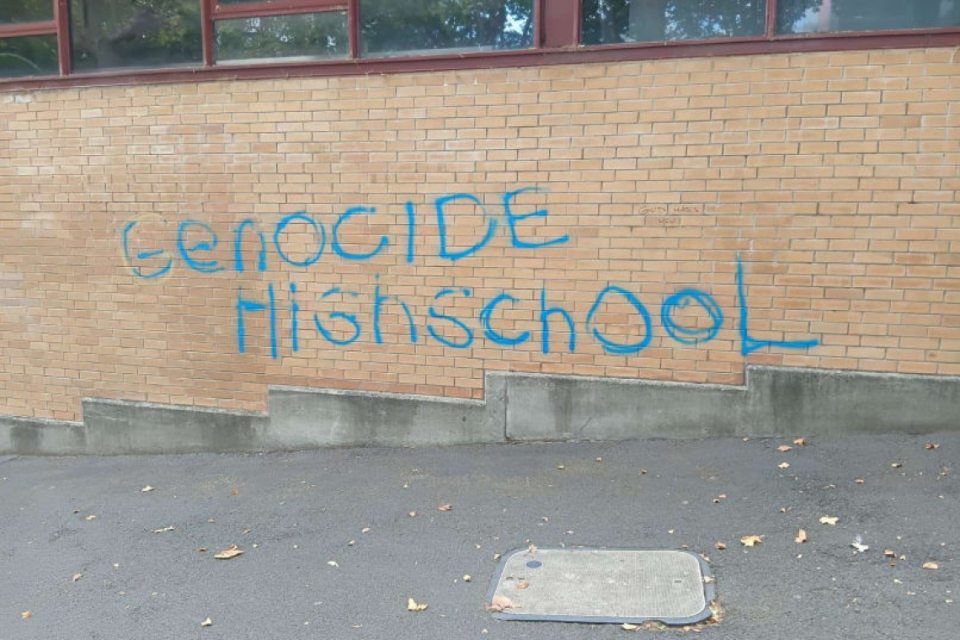 GenOCIDE
HighschooL